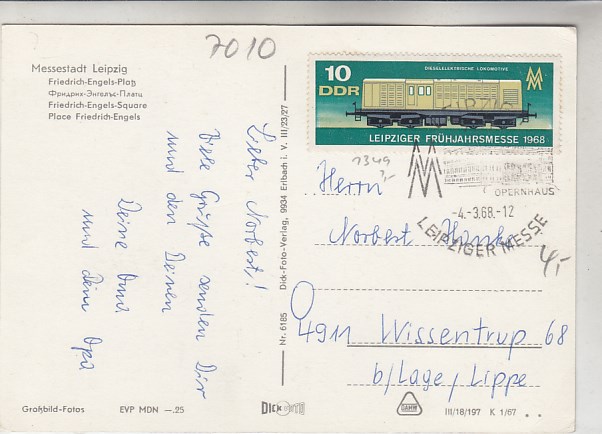 7010
Messestadt Leipzig
Friedrich-Engels-Platz
Фридрих-Энгельс-Платц
Friedrich-Engels-Square
Place Friedrich-Engels
Lieber Norbert,!
Viele Grüße senden Dir
und den Deinen
Deine Oma
und dein Opa
Großbild-Fotos EVP MDN —.25
Nr. 6185 Dick-Foto-Verlag, 9934 Erlbach i. V. III/23/27
DICK FOTO
DIESELELEKTRISCHE LOKOMOTIVE
10
DDR
LEIPZIGER FRÜHJAHRSMESSE 1968
LEIPZIG
OPERNHAUS
-4.-3.68.-12
LEIPZIGER MESSE
1349
4,-
Herrn
Norbert
4911 Wissentrup 68
b/Lage/Lippe
III/18/197 K 1/67